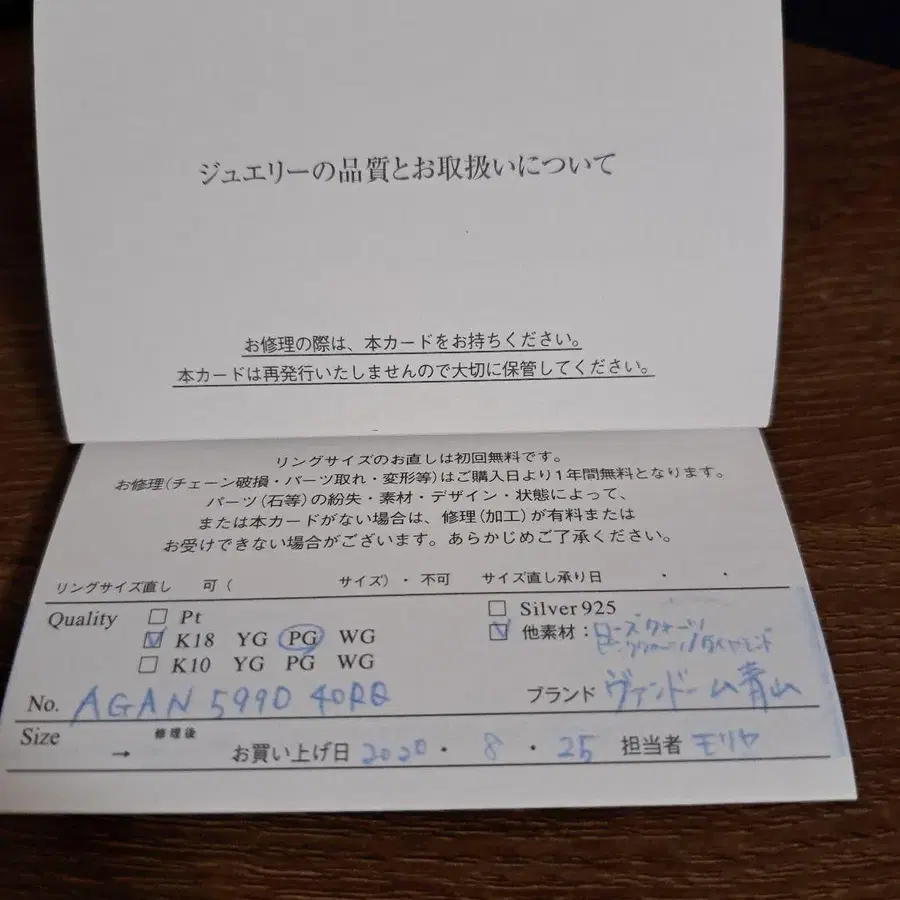 ジュエリーの品質とお取扱いについて
お修理の際は、本カードをお持ちください。
本カードは再発行いたしませんので大切に保管してください。
リングサイズのお直しは初回無料です。
お修理(チェーン破損・パーツ取れ・変形等)はご購入日より1年間無料となります。
パーツ(石等)の紛失・素材・デザイン・状態によって、
または本カードがない場合は、修理(加工)が有料または
お受けできない場合がございます。あらかじめご了承ください。
リングサイズ直し 可( サイズ)・不可 サイズ直し承り日 ・ ・
Quality □ Pt □ Silver925
☑ K18 YG PG WG ☑ 他素材:ローズクォーツ
/ダイヤモンド
□ K10 YG PG WG
No. AGAN 5990 40RQ ブランド ヴァンドーム青山
Size → 修理後 お買い上げ日 2020・8・25 担当者 モリヤ